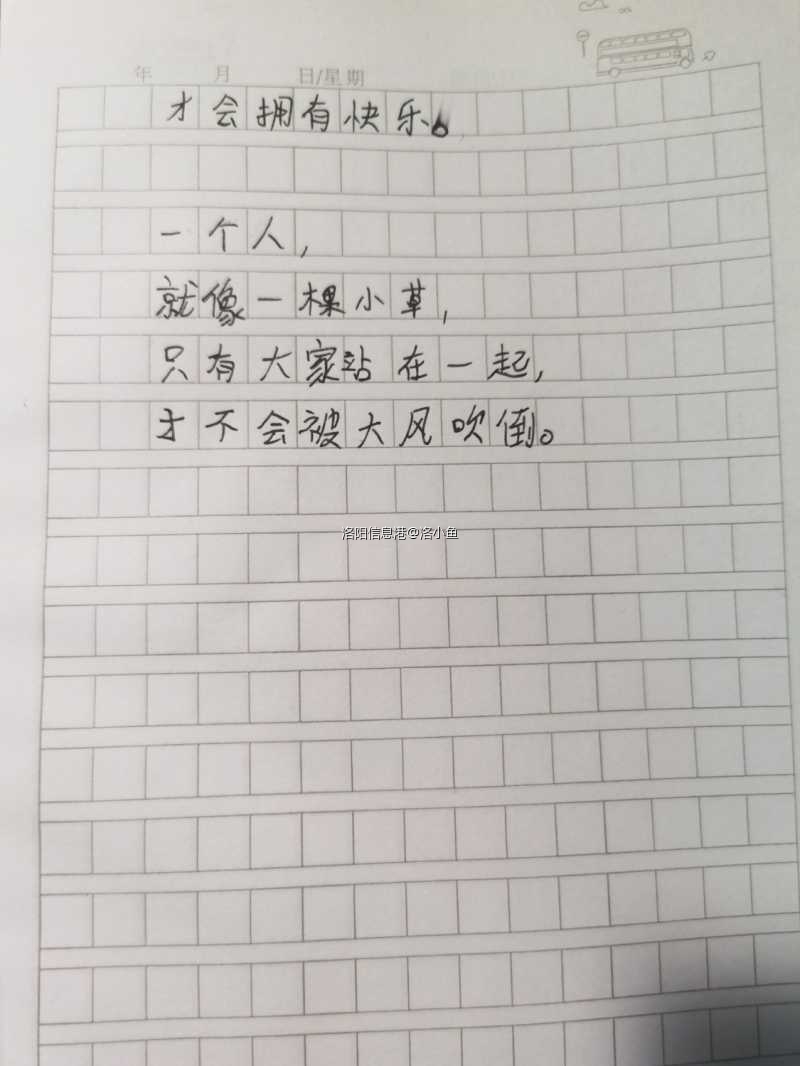 年 月 日/星期
才会拥有快乐。
一个人,
就像一棵小草,
只有大家站在一起,
才不会被大风吹倒。
洛阳信息港@洛小鱼